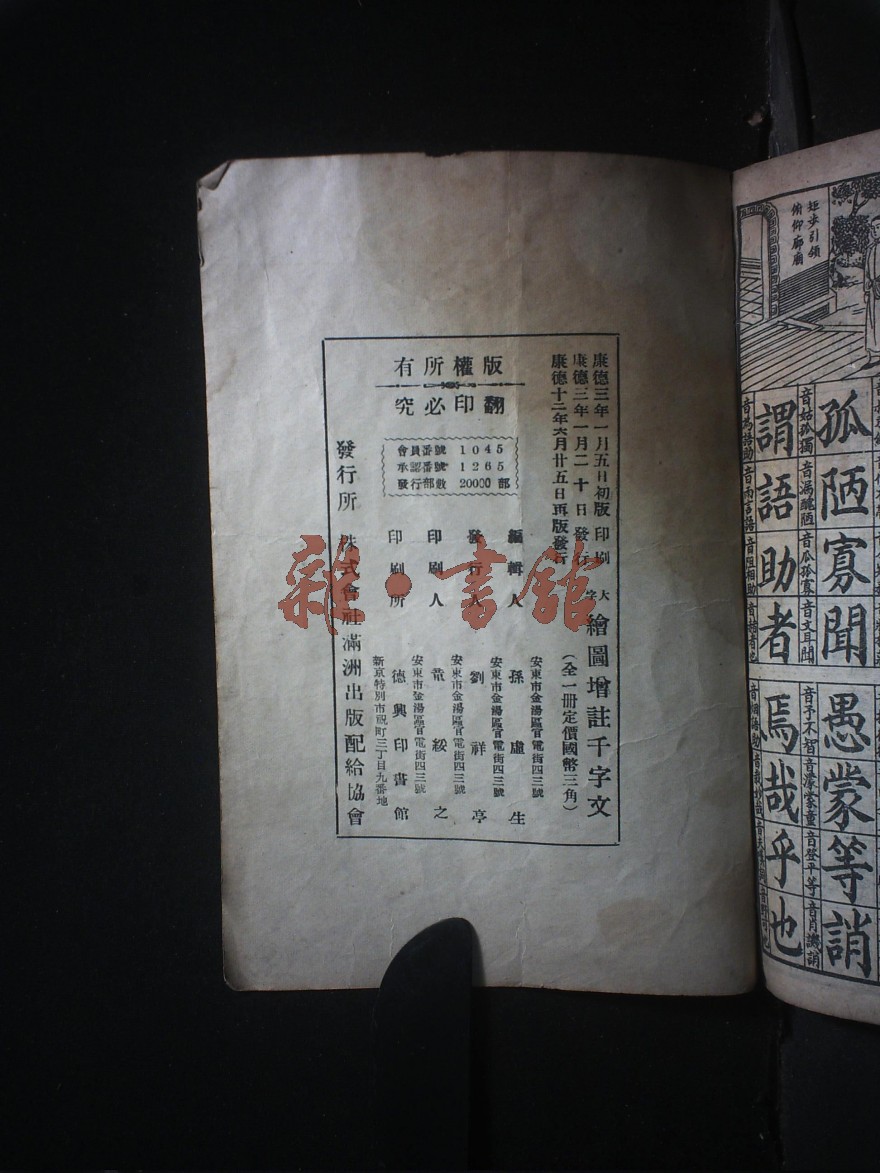 矩步引領
俯仰廊廟
孤陋寡聞
愚蒙等誚
音姑孤獨
音漏醜陋
音瓜孤寡
音文耳聞
音予不智
音濛蒙童
音登平等
音肖譏誚
謂語助者
焉哉乎也
大字
繪圖增註千字文
(全一冊定價國幣三角)
康德三年一月五日初版印刷
康德三年一月二十日發行
康德十二年六月廿五日再版發行
版權所有
翻印必究
會員番號 1045
承認番號 1265
發行部數 20000 部
安東市金湯區官電街四三號
編輯人 孫虛生
安東市金湯區官電街四三號
發行人 劉祥亭
安東市金湯區官電街四三號
印刷人 綏之
安東市金湯區官電街四三號
印刷所 德興印書館
新京特別市祝町三丁目九番地
發行所 株式會社滿洲出版配給協會
雜·書館